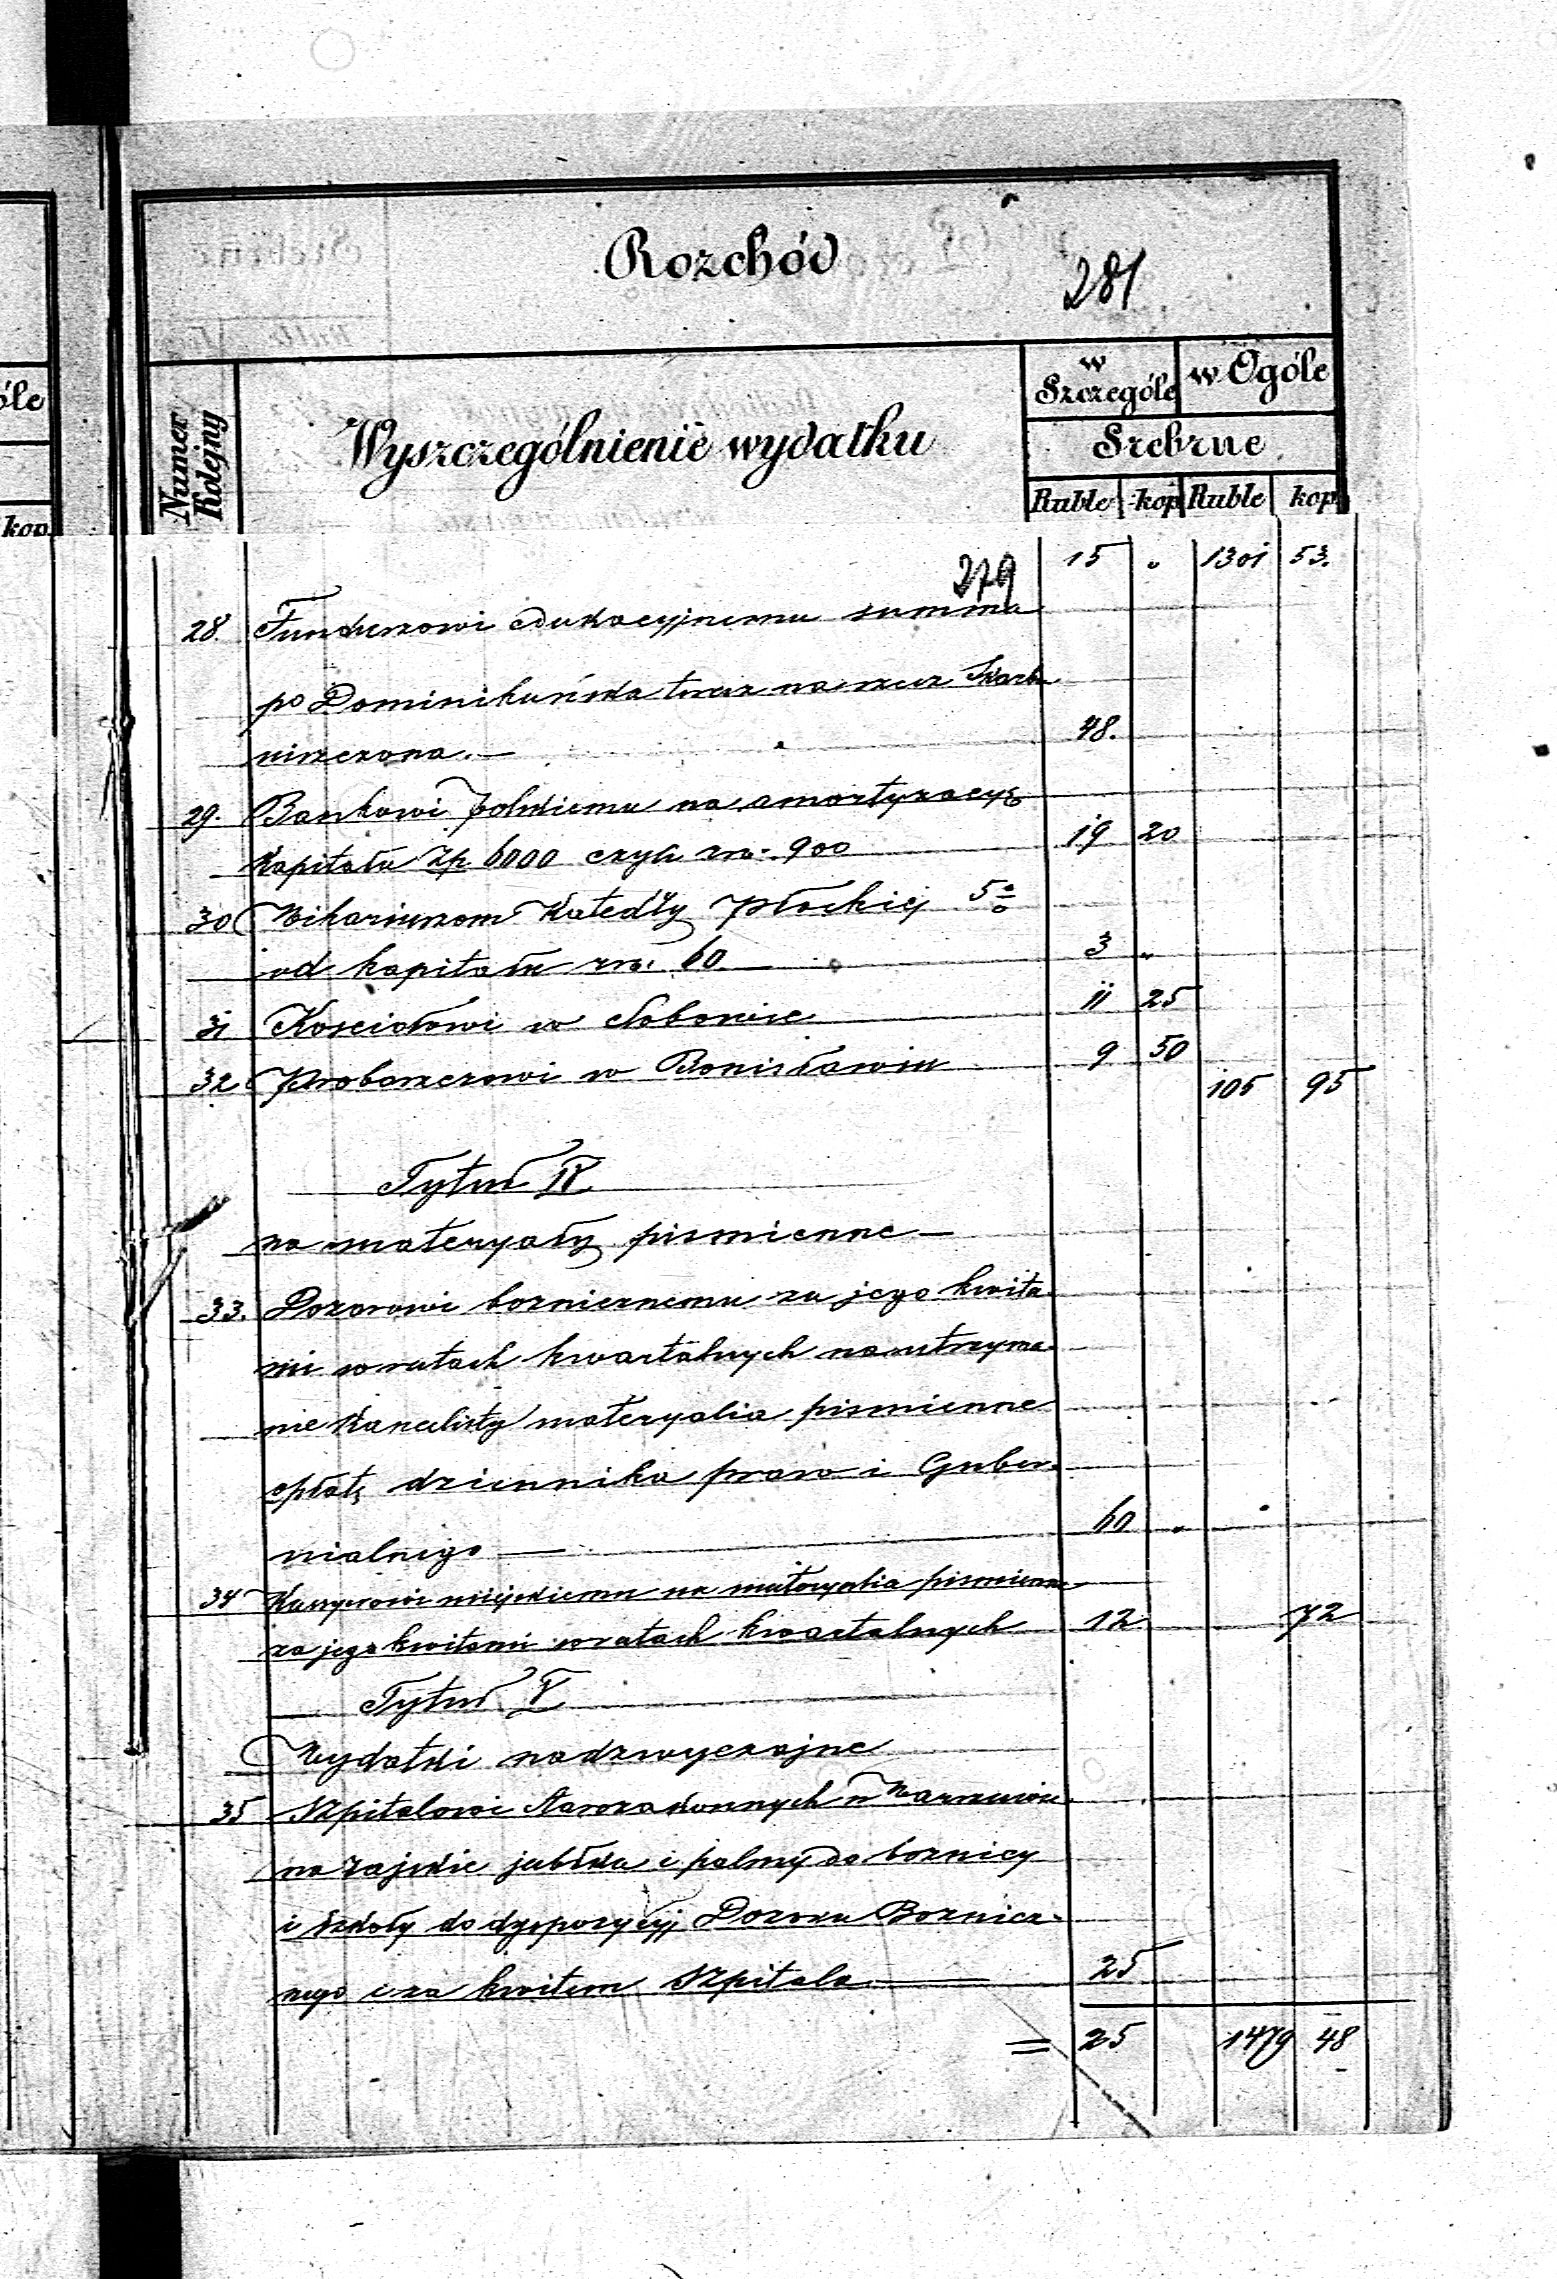 Rozchód
281
óle
kop.
Numer Kolejny
Wyszczególnienie wydatku
w Szczególe
w Ogóle
Srebrne
Ruble kop Ruble kop
15 „ 1301 53.
279
28. Funduszowi edukacyjnemu summa
po Dominikańska teraz na rzecz Skarbu
niszczona.— 48.
29. Bankowi Polskiemu na amortyzacyę
Kapitału Zp. 6000 czyli rs. 900 19 20
30 Wikariuszom Katedry Płockiej 5%
od kapitału rs. 60 3 „
31 Kosciołowi w 11 25
32 Proboszczowi w Bonisławiu 9 50
105 95
Tytuł IV
na materyały pismienne —
33. Dozorowi bozniczemu za jego kwita-
mi w ratach kwartalnych na utrzyma-
nie Kancelisty materyalia pismienne
opłatę dziennika praw i Guber-
nialnego — 60 „
34 Kassyerowi miejskiemu na materyalia pismienne
za jego kwitami w ratach kwartalnych 12 72
Tytuł V
Wydatki nadzwyczajne
35 Szpitalowi Starozakonnych w Warszawie
na rajskie jabłka i palmy do boznicy
i szkoły do dyspozycyi Dozoru Boznicz-
nego i za kwitem Szpitala — 25
= 25 1479 48